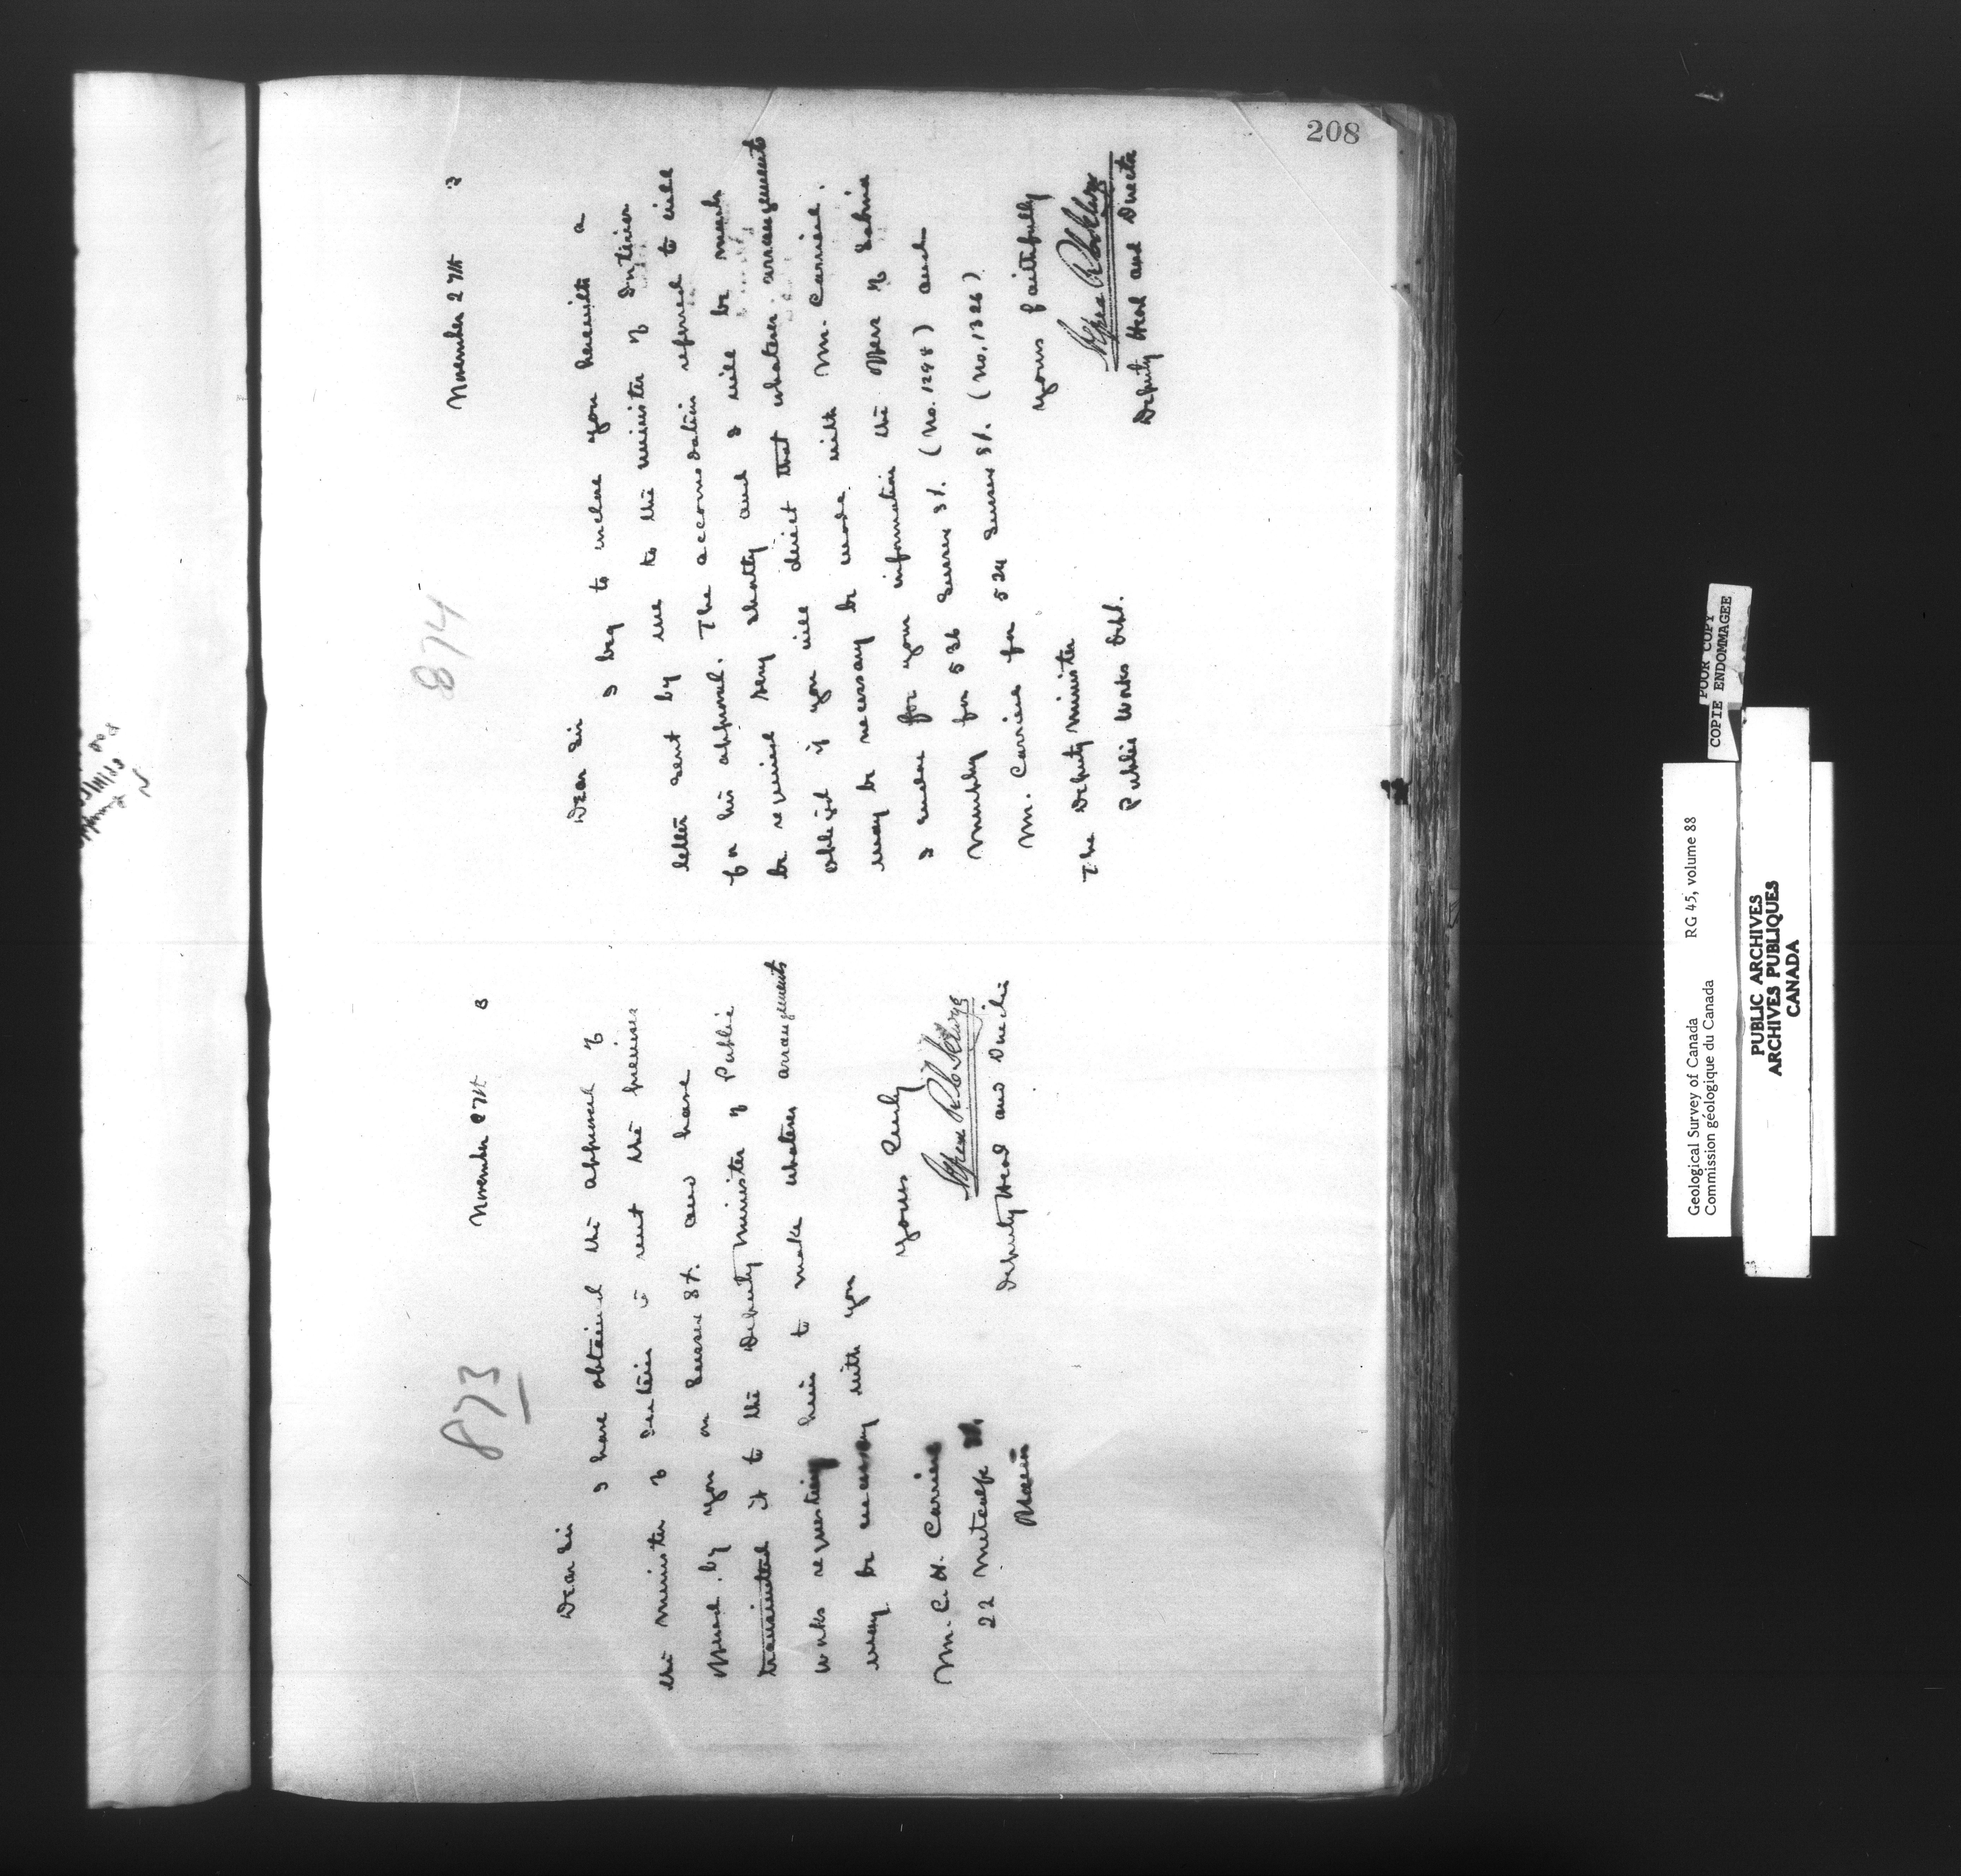 208
873
November 27th 3
Dear Sir
I have obtained the approval of
the Minister of Interior to rent the premises
owned by you on Sussex St. and have
transmitted it to the Deputy Minister of Public
Works requesting him to make whatever arrangements
may be necessary with you
Yours truly
Deputy Head and Director
Mr. C. H. Carriere
22 Metcalfe St.
874
November 27th 3
Dear Sir
I beg to inclose you herewith a
letter sent by me to the Minister of Interior
for his approval. The accomodation referred to will
be required very shortly and I will be much
obliged if you will direct that whatever arrangements
may be necessary be made with Mr. Carriere.
I enclose for your information the offers of
Murphy for 536 Sussex St. (No. 1298) and
Mr. Carriere for 524 Sussex St. (No. 1326)
Yours faithfully
Deputy Head and Director
The Deputy Minister
Public Works Dept.
POOR COPY
COPIE ENDOMMAGEE
Geological Survey of Canada RG 45, volume 88
Commission géologique du Canada
PUBLIC ARCHIVES
ARCHIVES PUBLIQUES
CANADA